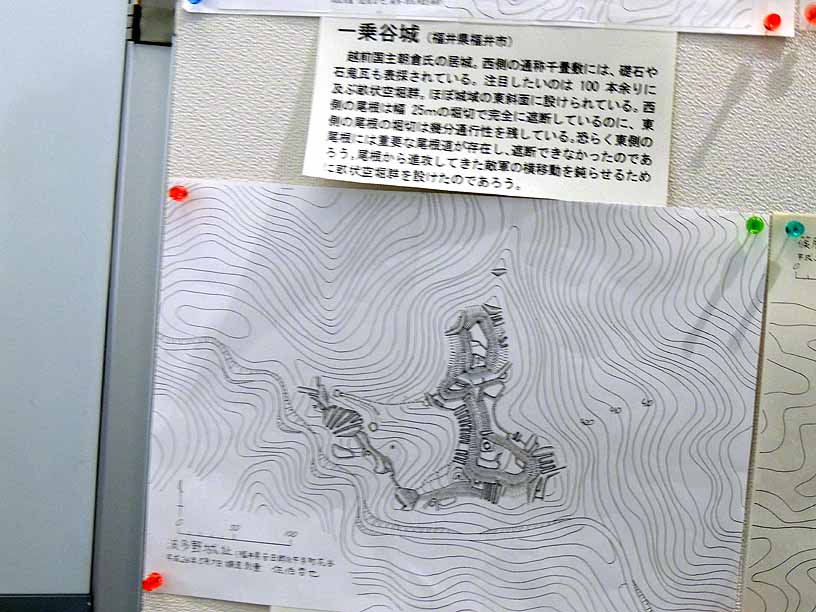 一乗谷城（福井県福井市）
越前国主朝倉氏の居城。西側の通称千畳敷には、礎石や
石鬼瓦も表採されている。注目したいのは 100 本余りに
及ぶ畝状空堀群。ほぼ城域の東斜面に設けられている。西
側の尾根は幅 25mの堀切で完全に遮断しているのに、東
側の尾根の堀切は幾分通行性を残している。恐らく東側の
尾根には重要な尾根道が存在し、遮断できなかったのであ
ろう。尾根から進攻してきた敵軍の横移動を鈍らせるため
に畝状空堀群を設けたのであろう。
420
410
50
100
0
波多野城址